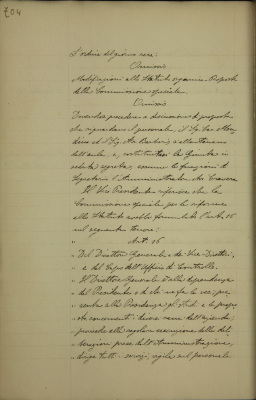 204
L'ordine del giorno reca:
Omissis
Modificazioni allo Statuto organico. Proposte
della Commissione speciale.
Omissis
Dovendosi procedere a discussione di proposte
che riguardano il personale, il Sig.
ed il Sig. si allontanano
dall'aula, e, costituitosi in
seduta segreta, assume le funzioni di
Segretario l'Amministratore
Il Vice Presidente riferisce che la
Commissione speciale per le riforme
allo Statuto avrebbe formulato l'art. 16
nel seguente tenore:
" Art. 16
" Del Direttore Generale, del Vice-Direttore,
" e del Capo dell'Ufficio di Controllo.
" Il Direttore Generale è alla dipendenza
" del Presidente, e di chi ne fa le veci; pre-
" senta alla Presidenza gli studi e le propo-
" ste concernenti i buoni dell'azienda;
" provvede alla regolare esecuzione delle deli-
" berazioni prese dall'Amministrazione,
" dirige tutti i servizi, vigila sul personale